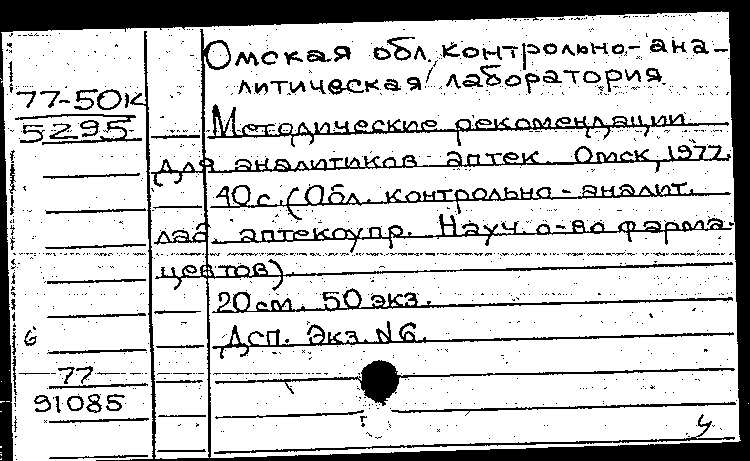 Омская обл. контрольно-ана-
литическая лаборатория
77-50к
5295
Методические рекомендации
для аналитиков аптек. Омск, 1977.
40 с. (Обл. контрольно-аналит.
лаб. аптекоупр. Науч. о-во фарма-
цевтов).
20 см. 50 экз.
Дсп. Экз. N6.
6
77
91085
у